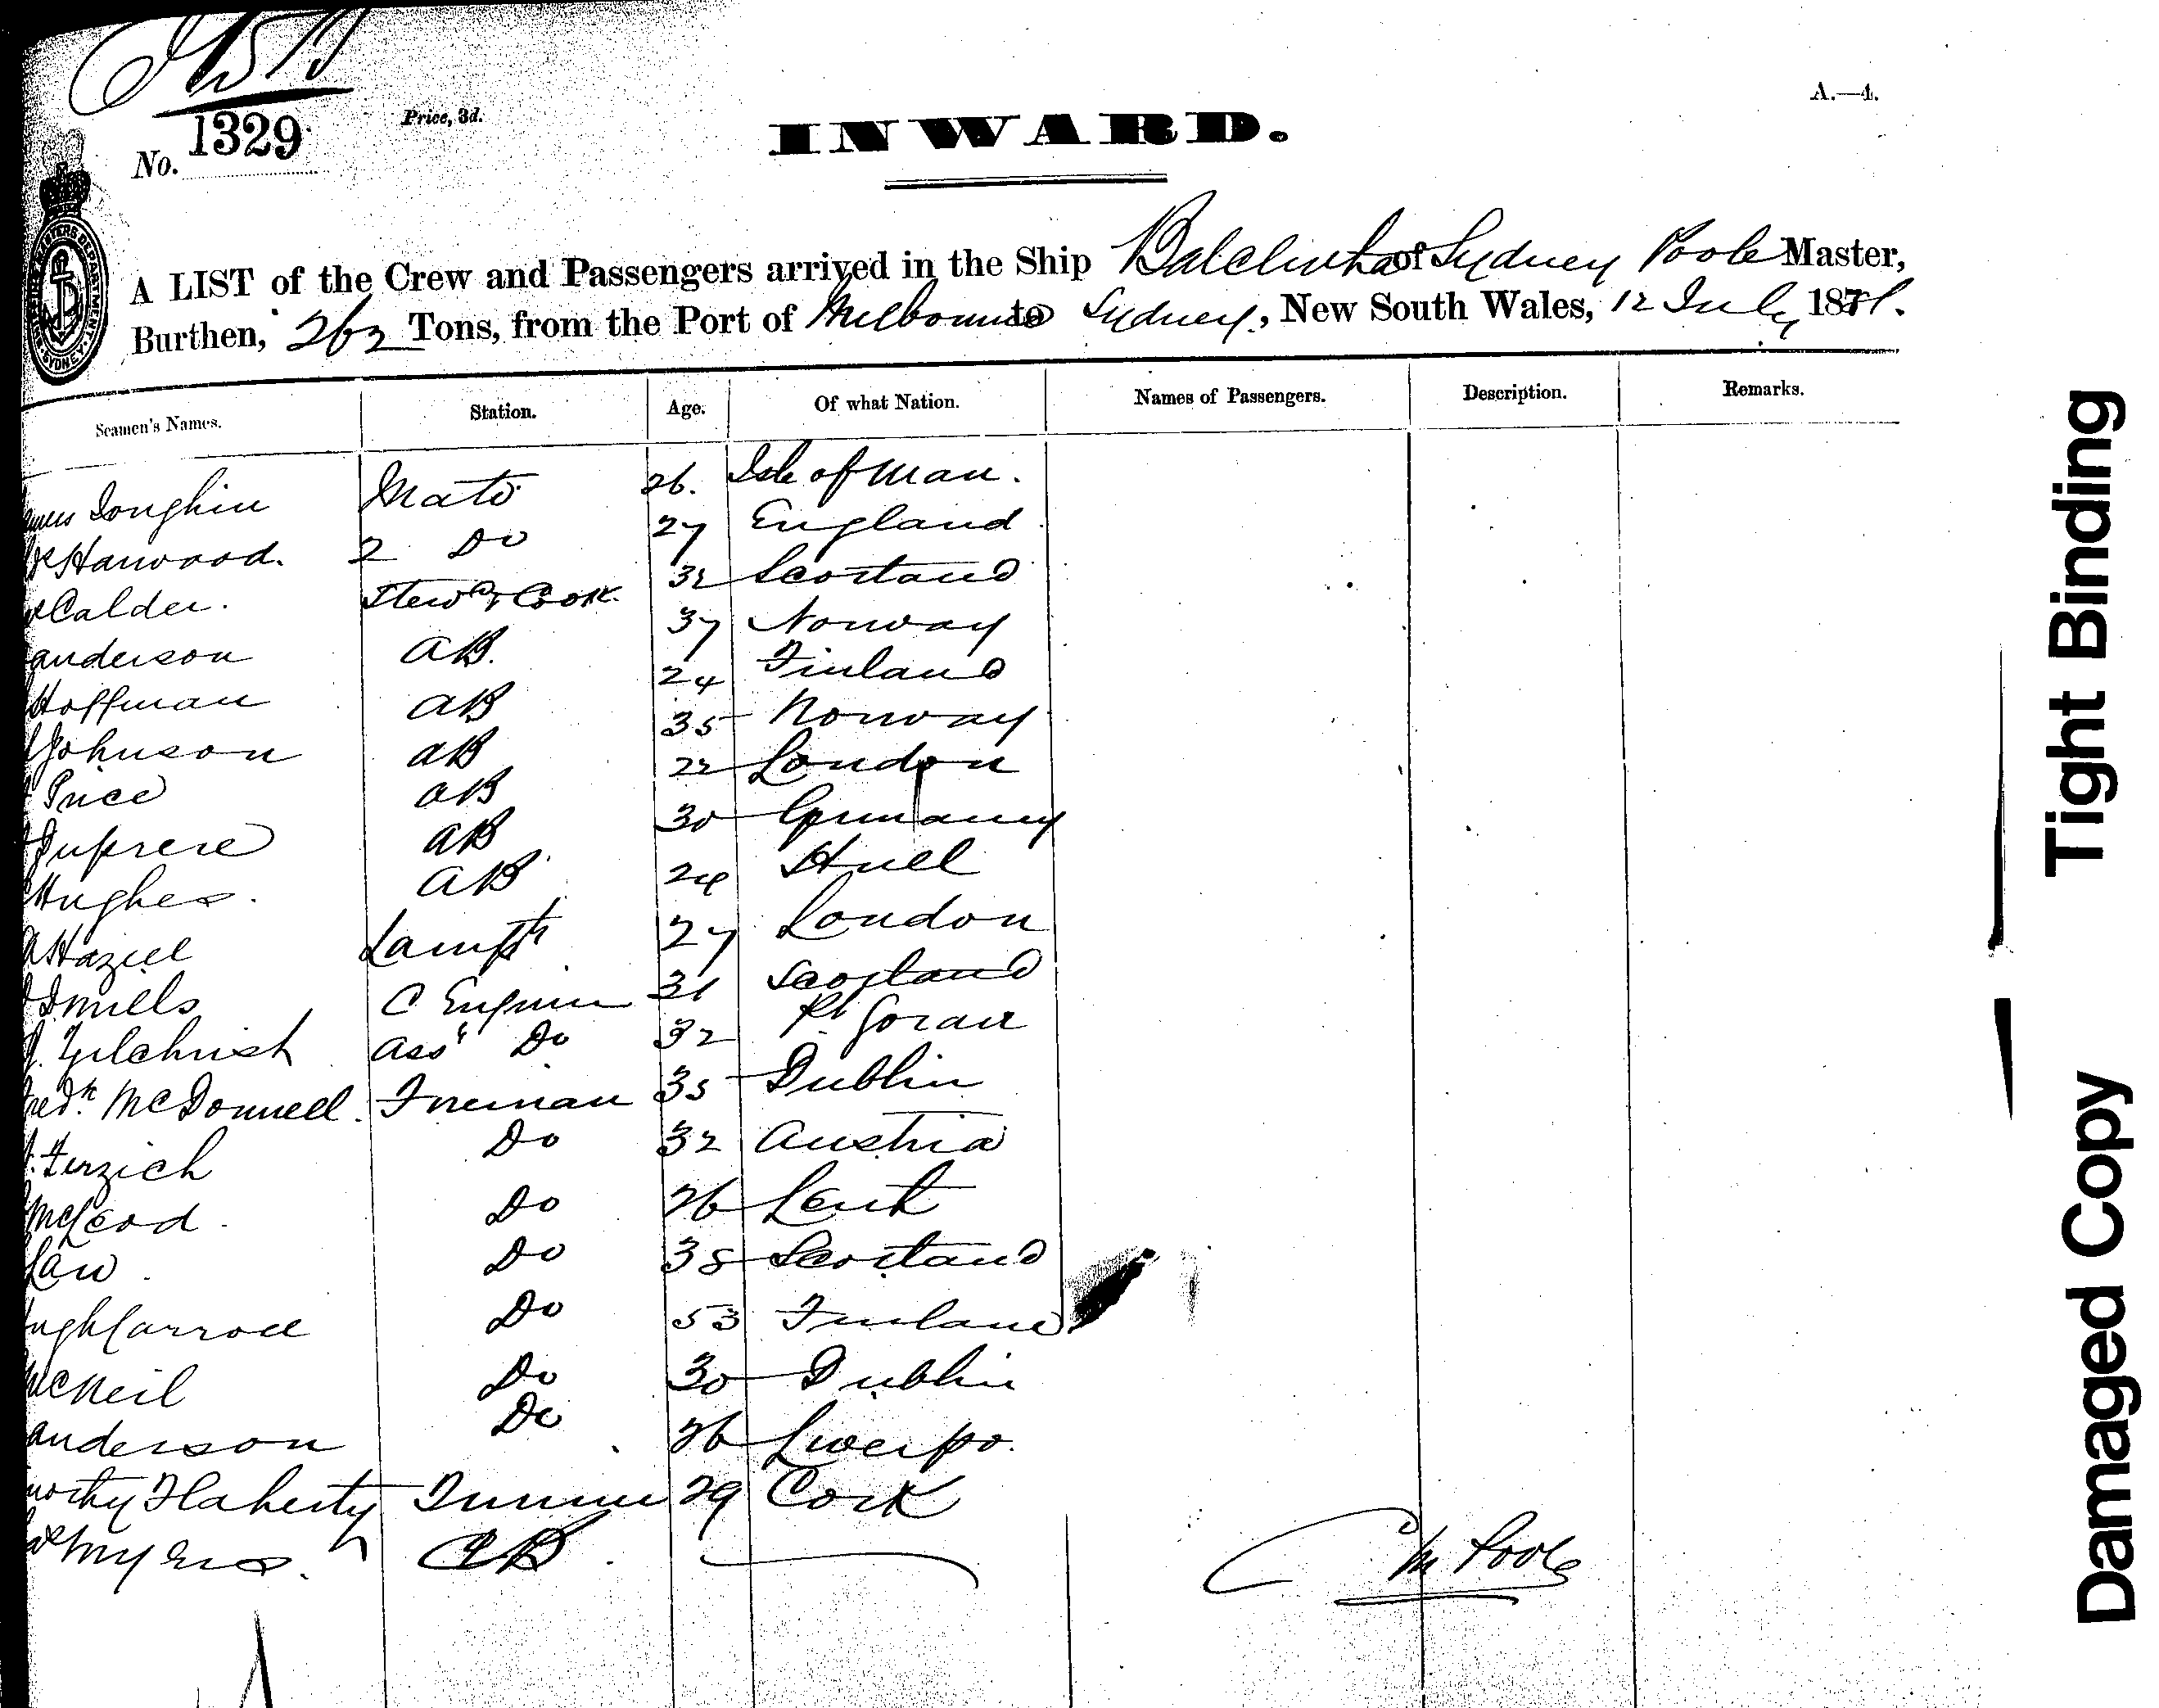 No. 1329
Price, 3d.
A.—4.
INWARD.
A LIST of the Crew and Passengers arrived in the Ship Balclutha of Sydney Poole Master,
Burthen, 262 Tons, from the Port of Melbourne to Sydney, New South Wales, 12 July 1881.
Seamen's Names. Station. Age. Of what Nation. Names of Passengers. Description. Remarks.
Mate 26. Isle of Man.
Harwood. 2 Do 27 England
Calder. Stewd & Cook. 32 Scotland
anderson AB. 37 Norway
Hoffman AB 24 Finland
Johnson AB 35 Norway
Price AB 22 London
Dufrere AB 30 Germany
Hughes. AB 24 Hull
Haziel Lampt 27 London
Mills C Engineer 31 Scotland
Gilchrist Asst Do 32
McDonnell. Fireman 35 Dublin
Terzich Do 32 Austria
McLeod. Do 26
Law. Do 38 Scotland
ugh Carroll Do 53
McNeil Do 30 Dublin
anderson Do 26 Liverpo.
mothy Flaherty Trimmer 29 Cork
Myers. AB
M Poole
Tight Binding
Damaged Copy